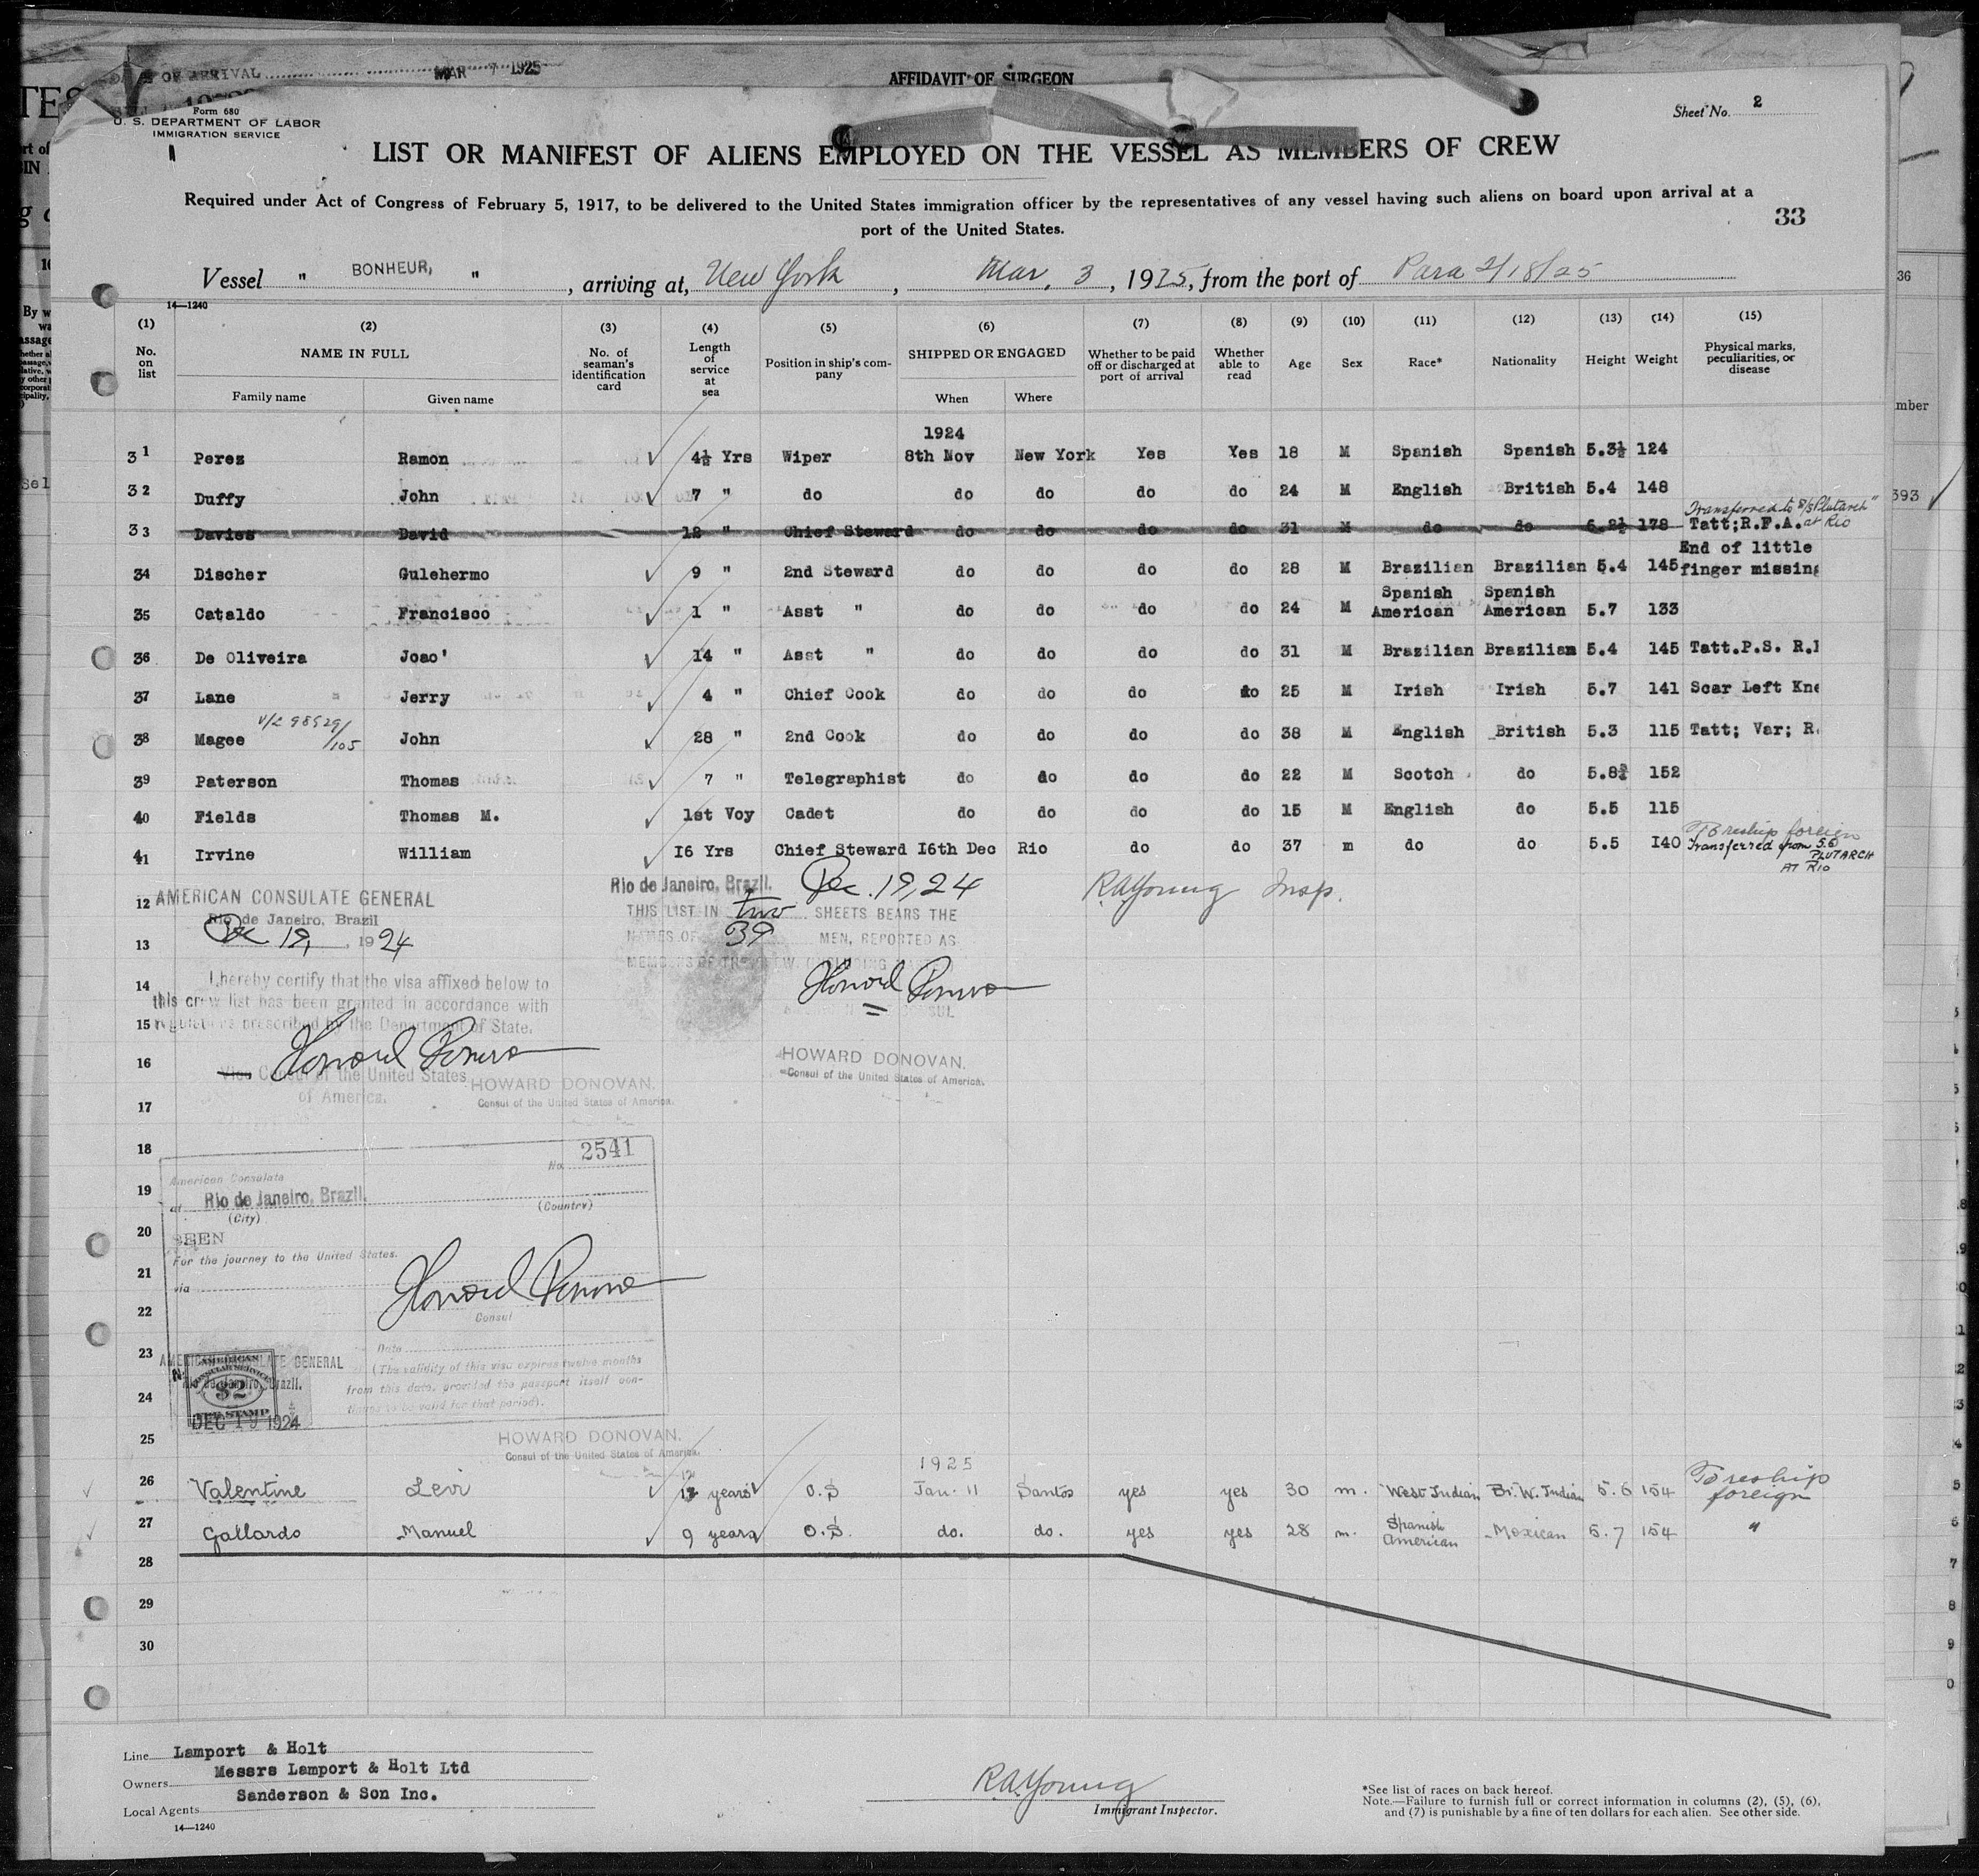 DATE OF ARRIVAL MAR 7 1925
AFFIDAVIT OF SURGEON
Form 680
U. S. DEPARTMENT OF LABOR
IMMIGRATION SERVICE
Sheet No. 2
LIST OR MANIFEST OF ALIENS EMPLOYED ON THE VESSEL AS MEMBERS OF CREW
Required under Act of Congress of February 5, 1917, to be delivered to the United States immigration officer by the representatives of any vessel having such aliens on board upon arrival at a
port of the United States.
33
Vessel " BONHEUR, " , arriving at, New York , Mar. 3 , 1925, from the port of Para 2/18/25
14—1240
(1) (2) (3) (4) (5) (6) (7) (8) (9) (10) (11) (12) (13) (14) (15)
No. on list NAME IN FULL No. of seaman's identification card Length of service at sea Position in ship's company SHIPPED OR ENGAGED Whether to be paid off or discharged at port of arrival Whether able to read Age Sex Race* Nationality Height Weight Physical marks, peculiarities, or disease
Family name Given name When Where
1924
31 Perez Ramon 4½ Yrs Wiper 8th Nov New York Yes Yes 18 M Spanish Spanish 5.3½ 124
32 Duffy John 7 " do do do do do 24 M English British 5.4 148
Transferred to S/S Plutarch"
33 Davies David 12 " Chief Steward do do do do 31 M do do 6.2½ 178 Tatt;R.F.A. at Rio
End of little
34 Discher Gulehermo 9 " 2nd Steward do do do do 28 M Brazilian Brazilian 5.4 145 finger missing
Spanish Spanish
35 Cataldo Francisco 1 " Asst " do do do do 24 M American American 5.7 133
36 De Oliveira Joao' 14 " Asst " do do do do 31 M Brazilian Brazilian 5.4 145 Tatt.P.S. R.
37 Lane Jerry 4 " Chief Cook do do do do 25 M Irish Irish 5.7 141 Scar Left Kne
V/L 98529/105
38 Magee John 28 " 2nd Cook do do do do 38 M English British 5.3 115 Tatt; Var; R.
39 Paterson Thomas 7 " Telegraphist do do do do 22 M Scotch do 5.8¾ 152
40 Fields Thomas M. 1st Voy Cadet do do do do 15 M English do 5.5 115
To reship foreign
41 Irvine William I6 Yrs Chief Steward I6th Dec Rio do do 37 m do do 5.5 I40 Transferred from S.S
PLUTARCH
AT Rio
12 AMERICAN CONSULATE GENERAL
Rio de Janeiro, Brazil
Dec 19, , 1924
Rio de Janeiro, Brazil. Dec. 19, 24
THIS LIST IN two SHEETS BEARS THE
NAMES OF 39 MEN, REPORTED AS
MEMBERS OF THE CREW.
R.A. Young Insp.
13
14 I hereby certify that the visa affixed below to
this crew list has been granted in accordance with
15 regulations prescribed by the Department of State.
Howard Donovan
CONSUL
Howard Donovan
16 Vice Consul of the United States
of America.
HOWARD DONOVAN.
Consul of the United States of America.
HOWARD DONOVAN.
Consul of the United States of America.
17
18 No. 2541
American Consulate
19 at Rio de Janeiro, Brazil.
(City) (Country)
20 SEEN
For the journey to the United States.
21 via
Howard Donovan
22 Consul
23 Date
AMERICAN CONSULATE GENERAL
Rio de Janeiro, Brazil.
AMERICAN
CONSULAR SERVICE
$2
FEE STAMP
DEC 19 1924
(The validity of this visa expires twelve months
24 from this date, provided the passport itself con-
tinues to be valid for that period).
25 HOWARD DONOVAN.
Consul of the United States of America.
1925
26 Valentine Levi 12 years O.S Jan. 11 Santos yes yes 30 m. West Indian Br. W. Indian 5.6 154 To reship
foreign
27 Gallardo Manuel 9 years O.S. do. do. yes yes 28 m. Spanish American Mexican 5.7 154 "
28
29
30
Line Lamport & Holt
Owners Messrs Lamport & Holt Ltd
Local Agents Sanderson & Son Inc.
14—1240
R.A. Young
Immigrant Inspector.
*See list of races on back hereof.
Note.—Failure to furnish full or correct information in columns (2), (5), (6),
and (7) is punishable by a fine of ten dollars for each alien. See other side.